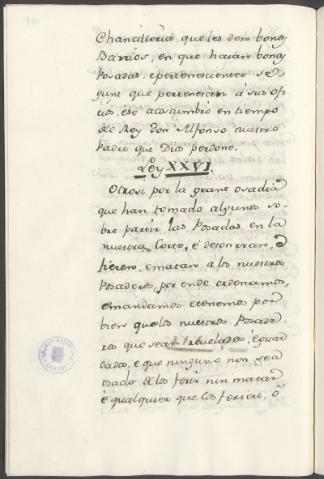 Chancilleria que les den bonos
Barrios, en que hayan bonas
Posadas, e pertenescientes se-
gunt que pertenescen a sus ofi-
cios, ese acostumbró en tiempo
del Rey don Alfonso nuestro
Padre que Dios perdone.
Ley XXVI
Otrosi por la grant osadia
que han tomado algunos so-
bre partir las Posadas en la
nuestra Corte, é desonrran, é
fieren, e matan a los nuestros
Posaderos, por ende ordenamos,
e mandamos, e tenemos por
bien que los nuestros Posade-
ros que sean rrecelados, é guar-
dados, e que ninguno non sea
osado de los ferir nin matar
é qualquier que los firiere, ó